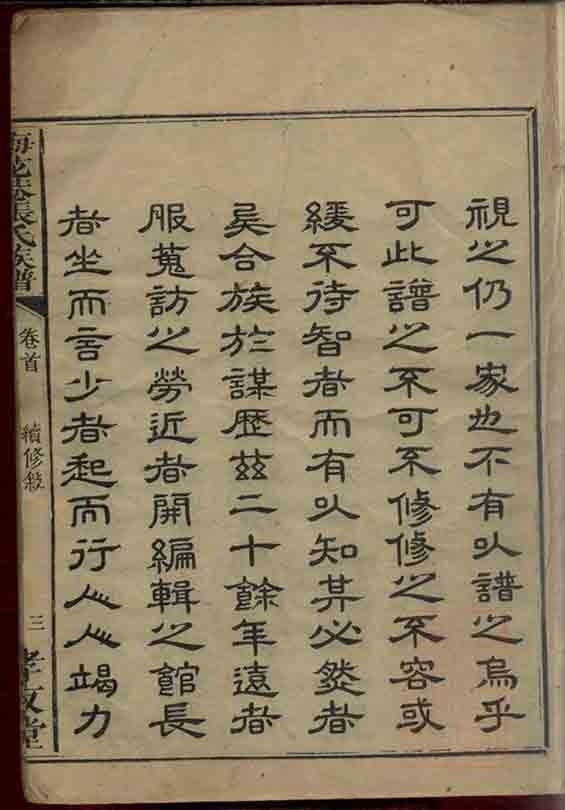 視之仍一家也不有以譜之烏乎
可此譜之不可不修修之不容或
緩不待智者而有以知其必然者
矣合族於謀歷茲二十餘年遠者
服蒐訪之勞近者開編輯之館長
者坐而言少者起而行人人竭力
張氏族譜
卷首
續修敘
三
孝友堂